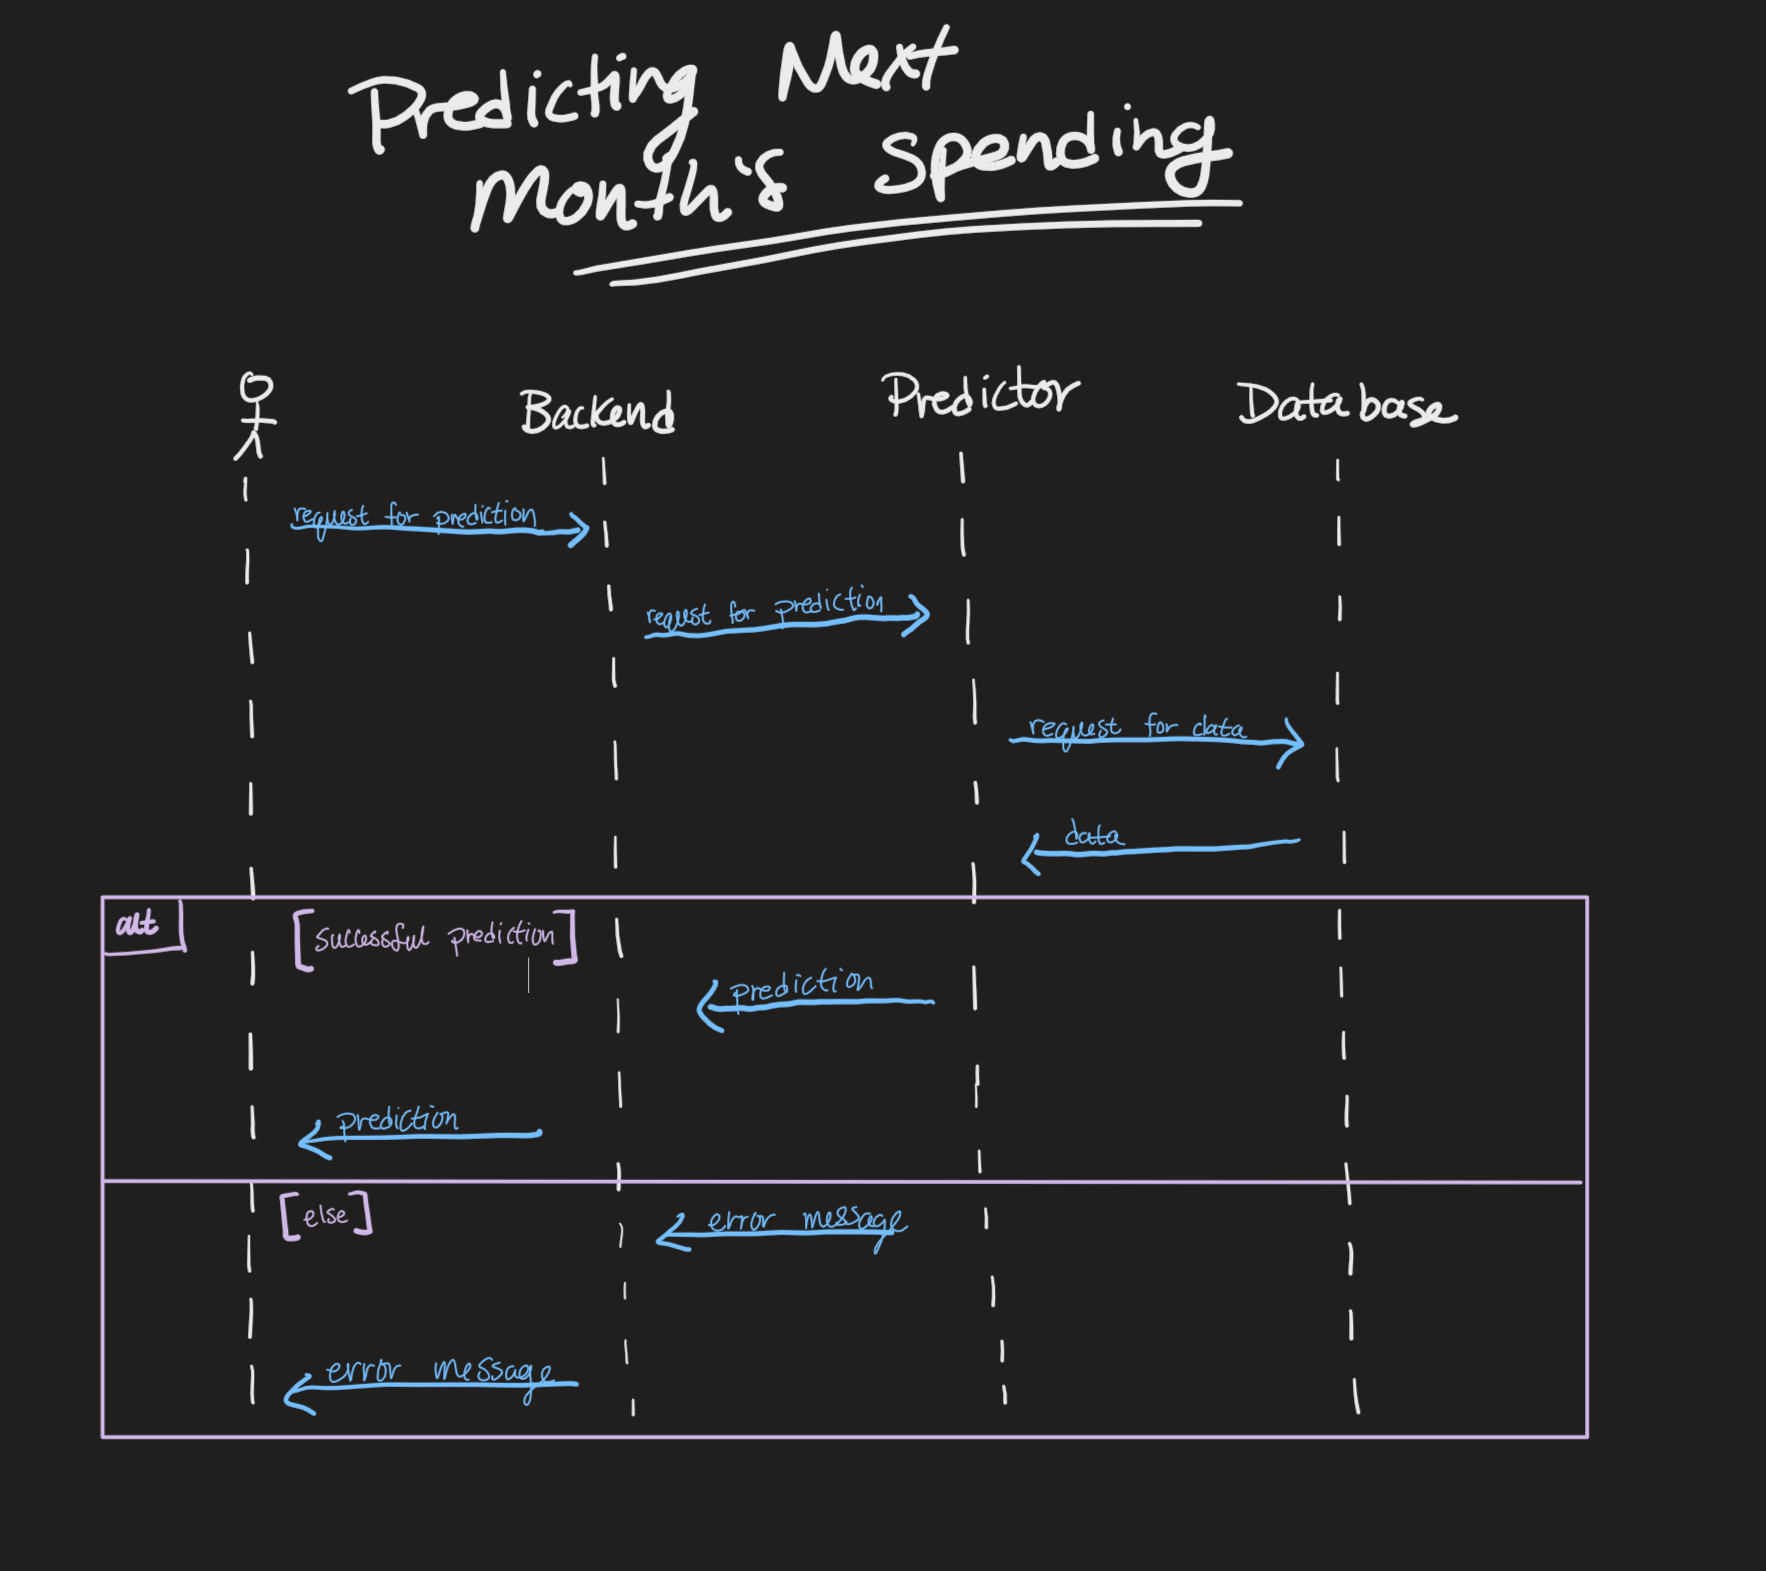 Predicting Next
Month's Spending
Backend Predictor Database
request for prediction
request for prediction
request for data
data
alt
[successful prediction]
prediction
prediction
[else]
error message
error message